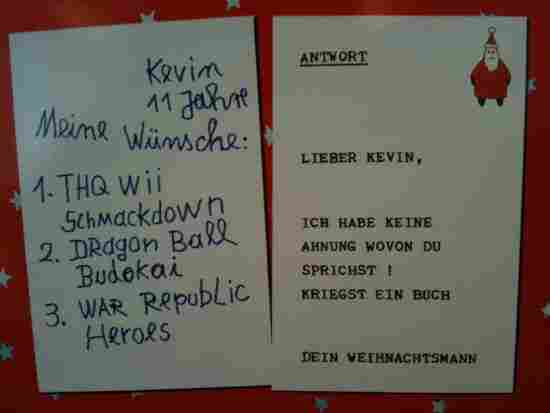 Kevin
11 Jahre
Meine Wünsche:
1. THQ Wii
Schmackdown
2. Dragon Ball
Budokai
3. WAR Republic
Heroes
ANTWORT
LIEBER KEVIN,
ICH HABE KEINE
AHNUNG WOVON DU
SPRICHST !
KRIEGST EIN BUCH
DEIN WEIHNACHTSMANN